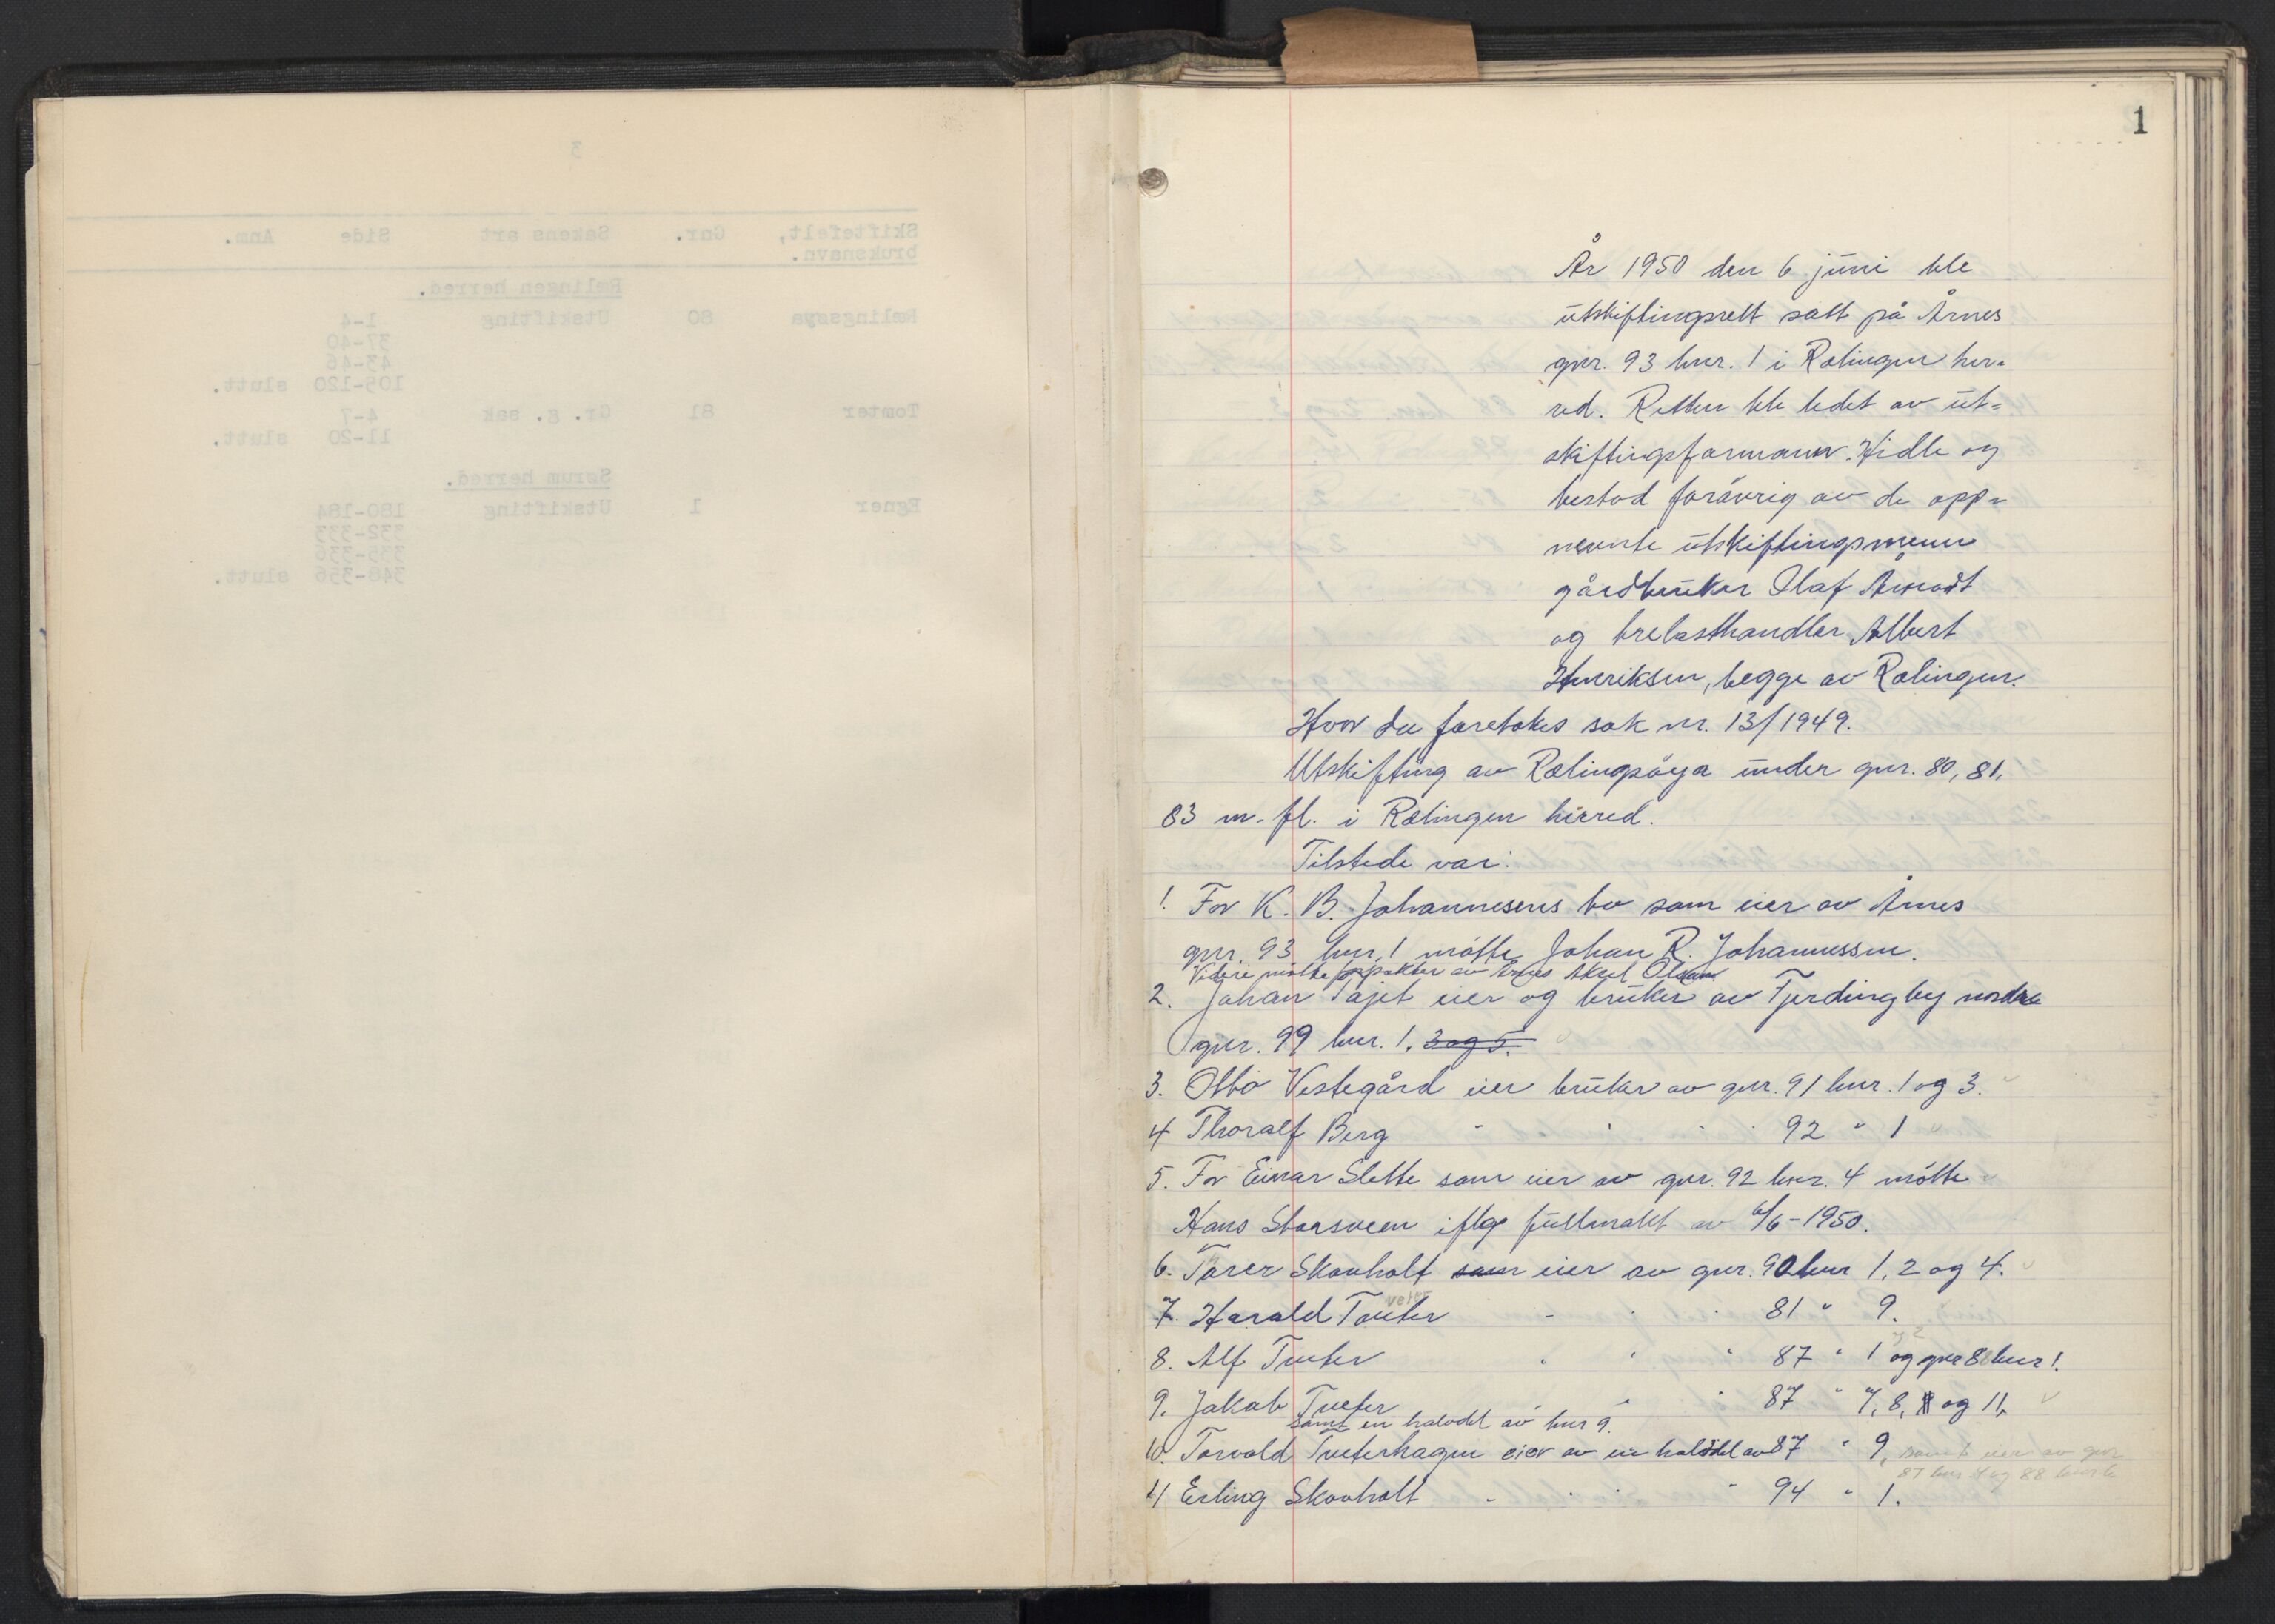 1
År 1950 den 6 juni ble
utskiftingsrett satt på Årnes
gnr. 93 bnr. 1 i Rælingen her=
red. Retten ble ledet av ut=
skiftingsformann Hidle og
bestod forøvrig av de opp=
nevnte utskiftingsmenn
gårdbruker Olaf Åmodt
og trelasthandler Albert
Henriksen, begge av Rælingen.
Hvor da foretokes sak nr. 13/1949.
Utskifting av Rælingsøya under gnr. 80, 81,
83 m. fl. i Rælingen herred.
Tilstede var:
1. For K. B. Johannesens bo som eier av Årnes
gnr. 93 bnr. 1 møtte Johan R. Johannessen.
Videre møtte forpakter av Årnes Aksel Olsen
2. Johan Tajet eier og bruker av Fjerdingby nordre
gnr. 99 bnr. 1, 3 og 5.
3. Otto Vestegård eier bruker av gnr. 91 bnr. 1 og 3.
4 Thoralf Berg " " " " 92 " 1
5. For Einar Slette som eier av gnr. 92 bnr. 4 møtte
Hans Storsveen iflge fullmakt av 6/6-1950.
6. Torer Skovholt som eier av gnr. 90 bnr 1, 2 og 4.
7. Harald Tveter " " " 81 " 9.
8. Alf Tveter " " " 87 " 1 og gnr 88 bnr 1.
og 2
9. Jakob Tveter " " 87 " 7, 8, og 11,
samt en halvdel av bnr 9.
10. Torvald Tveterhagen eier av en halvdel av 87 " 9, samt eier av gnr
87 bnr 4 og 88 bnr 6
11 Erling Skovholt " " " " 94 " 1.
3
Skiftefelt, bruksnavn. Gnr. Sakens art Side Anm.
Rælingen herred.
Rælingsøya 80 Utskifting 1-4
37-40
43-46
105-120 slutt.
Tomter 81 Gr. g. sak 4-7
11-20 slutt.
Sørum herred.
Egner 1 Utskifting 180-184
332-333
335-336
348-356 slutt.